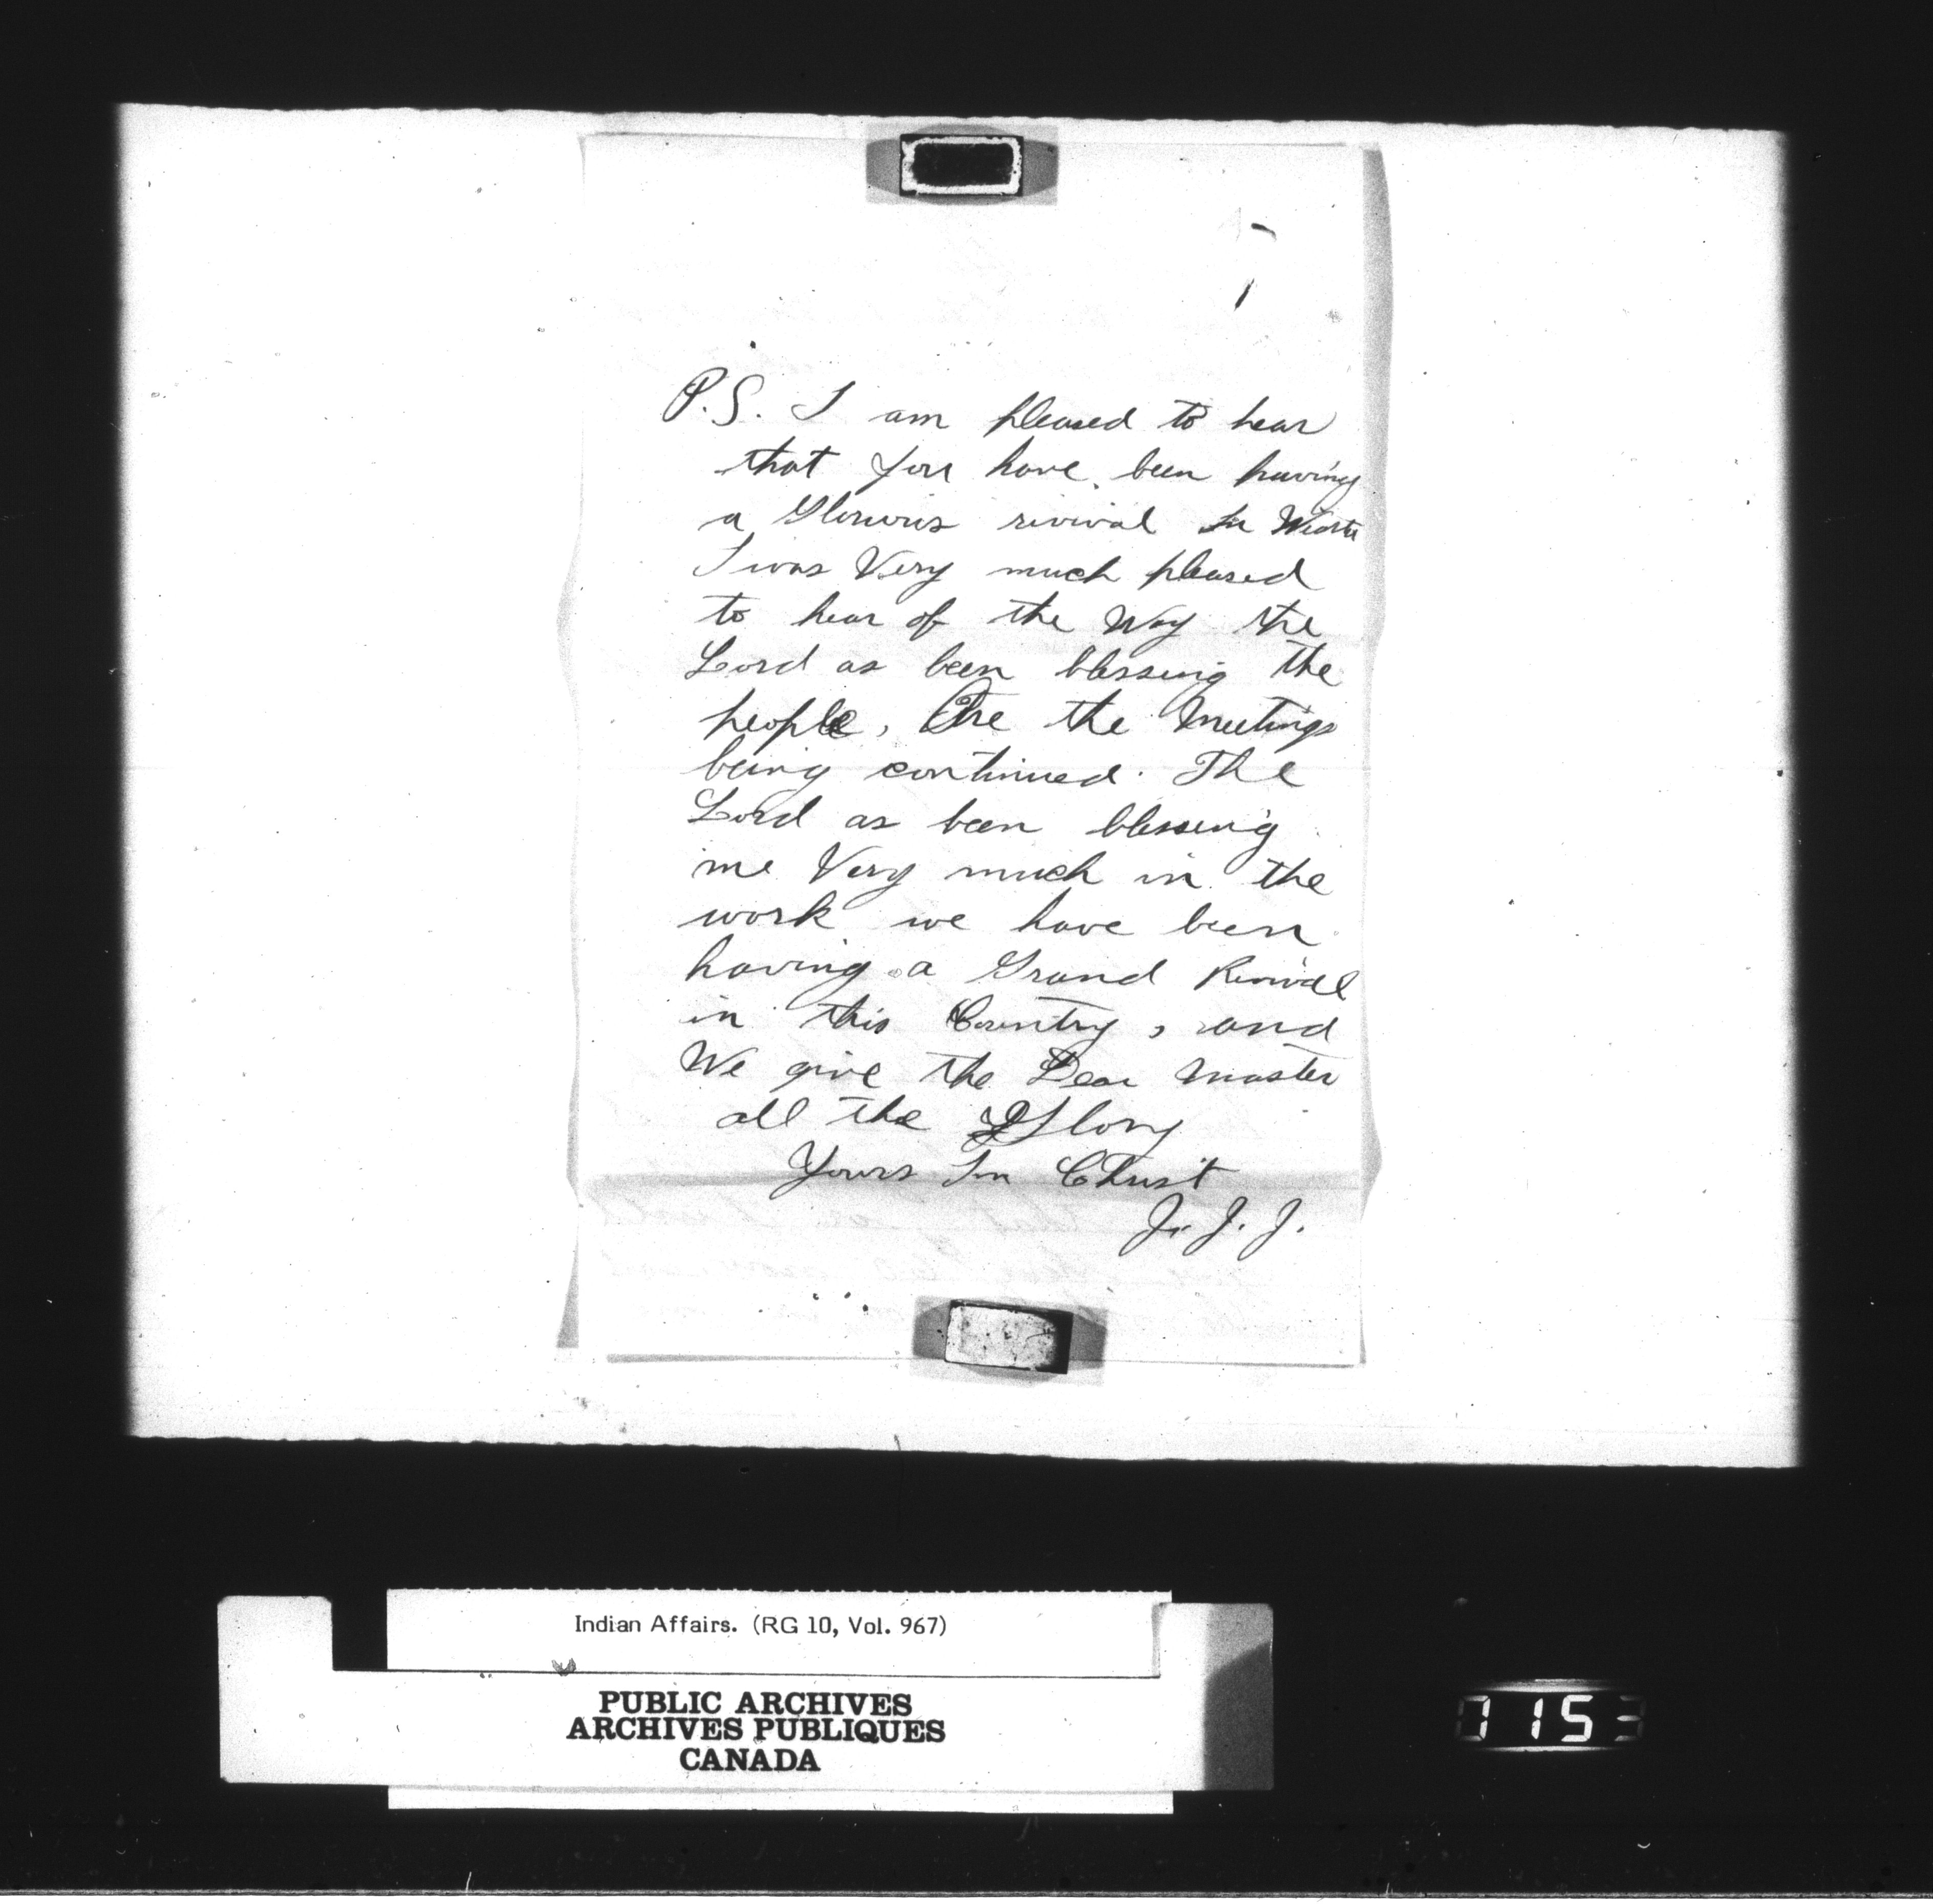 P.S. I am pleased to hear
that you have been having
a Glorious revival In Wiarton
I was Very much pleased
to hear of the Way the
Lord as been blessing the
people, Are the Meetings
being continued. The
Lord as been blessing
me Very much in the
work we have been
having a Grand Revival
in this Country, and
We give the Dear Master
all the Glory
Yours In Christ
J. J. J.
Indian Affairs. (RG 10, Vol. 967)
PUBLIC ARCHIVES
ARCHIVES PUBLIQUES
CANADA